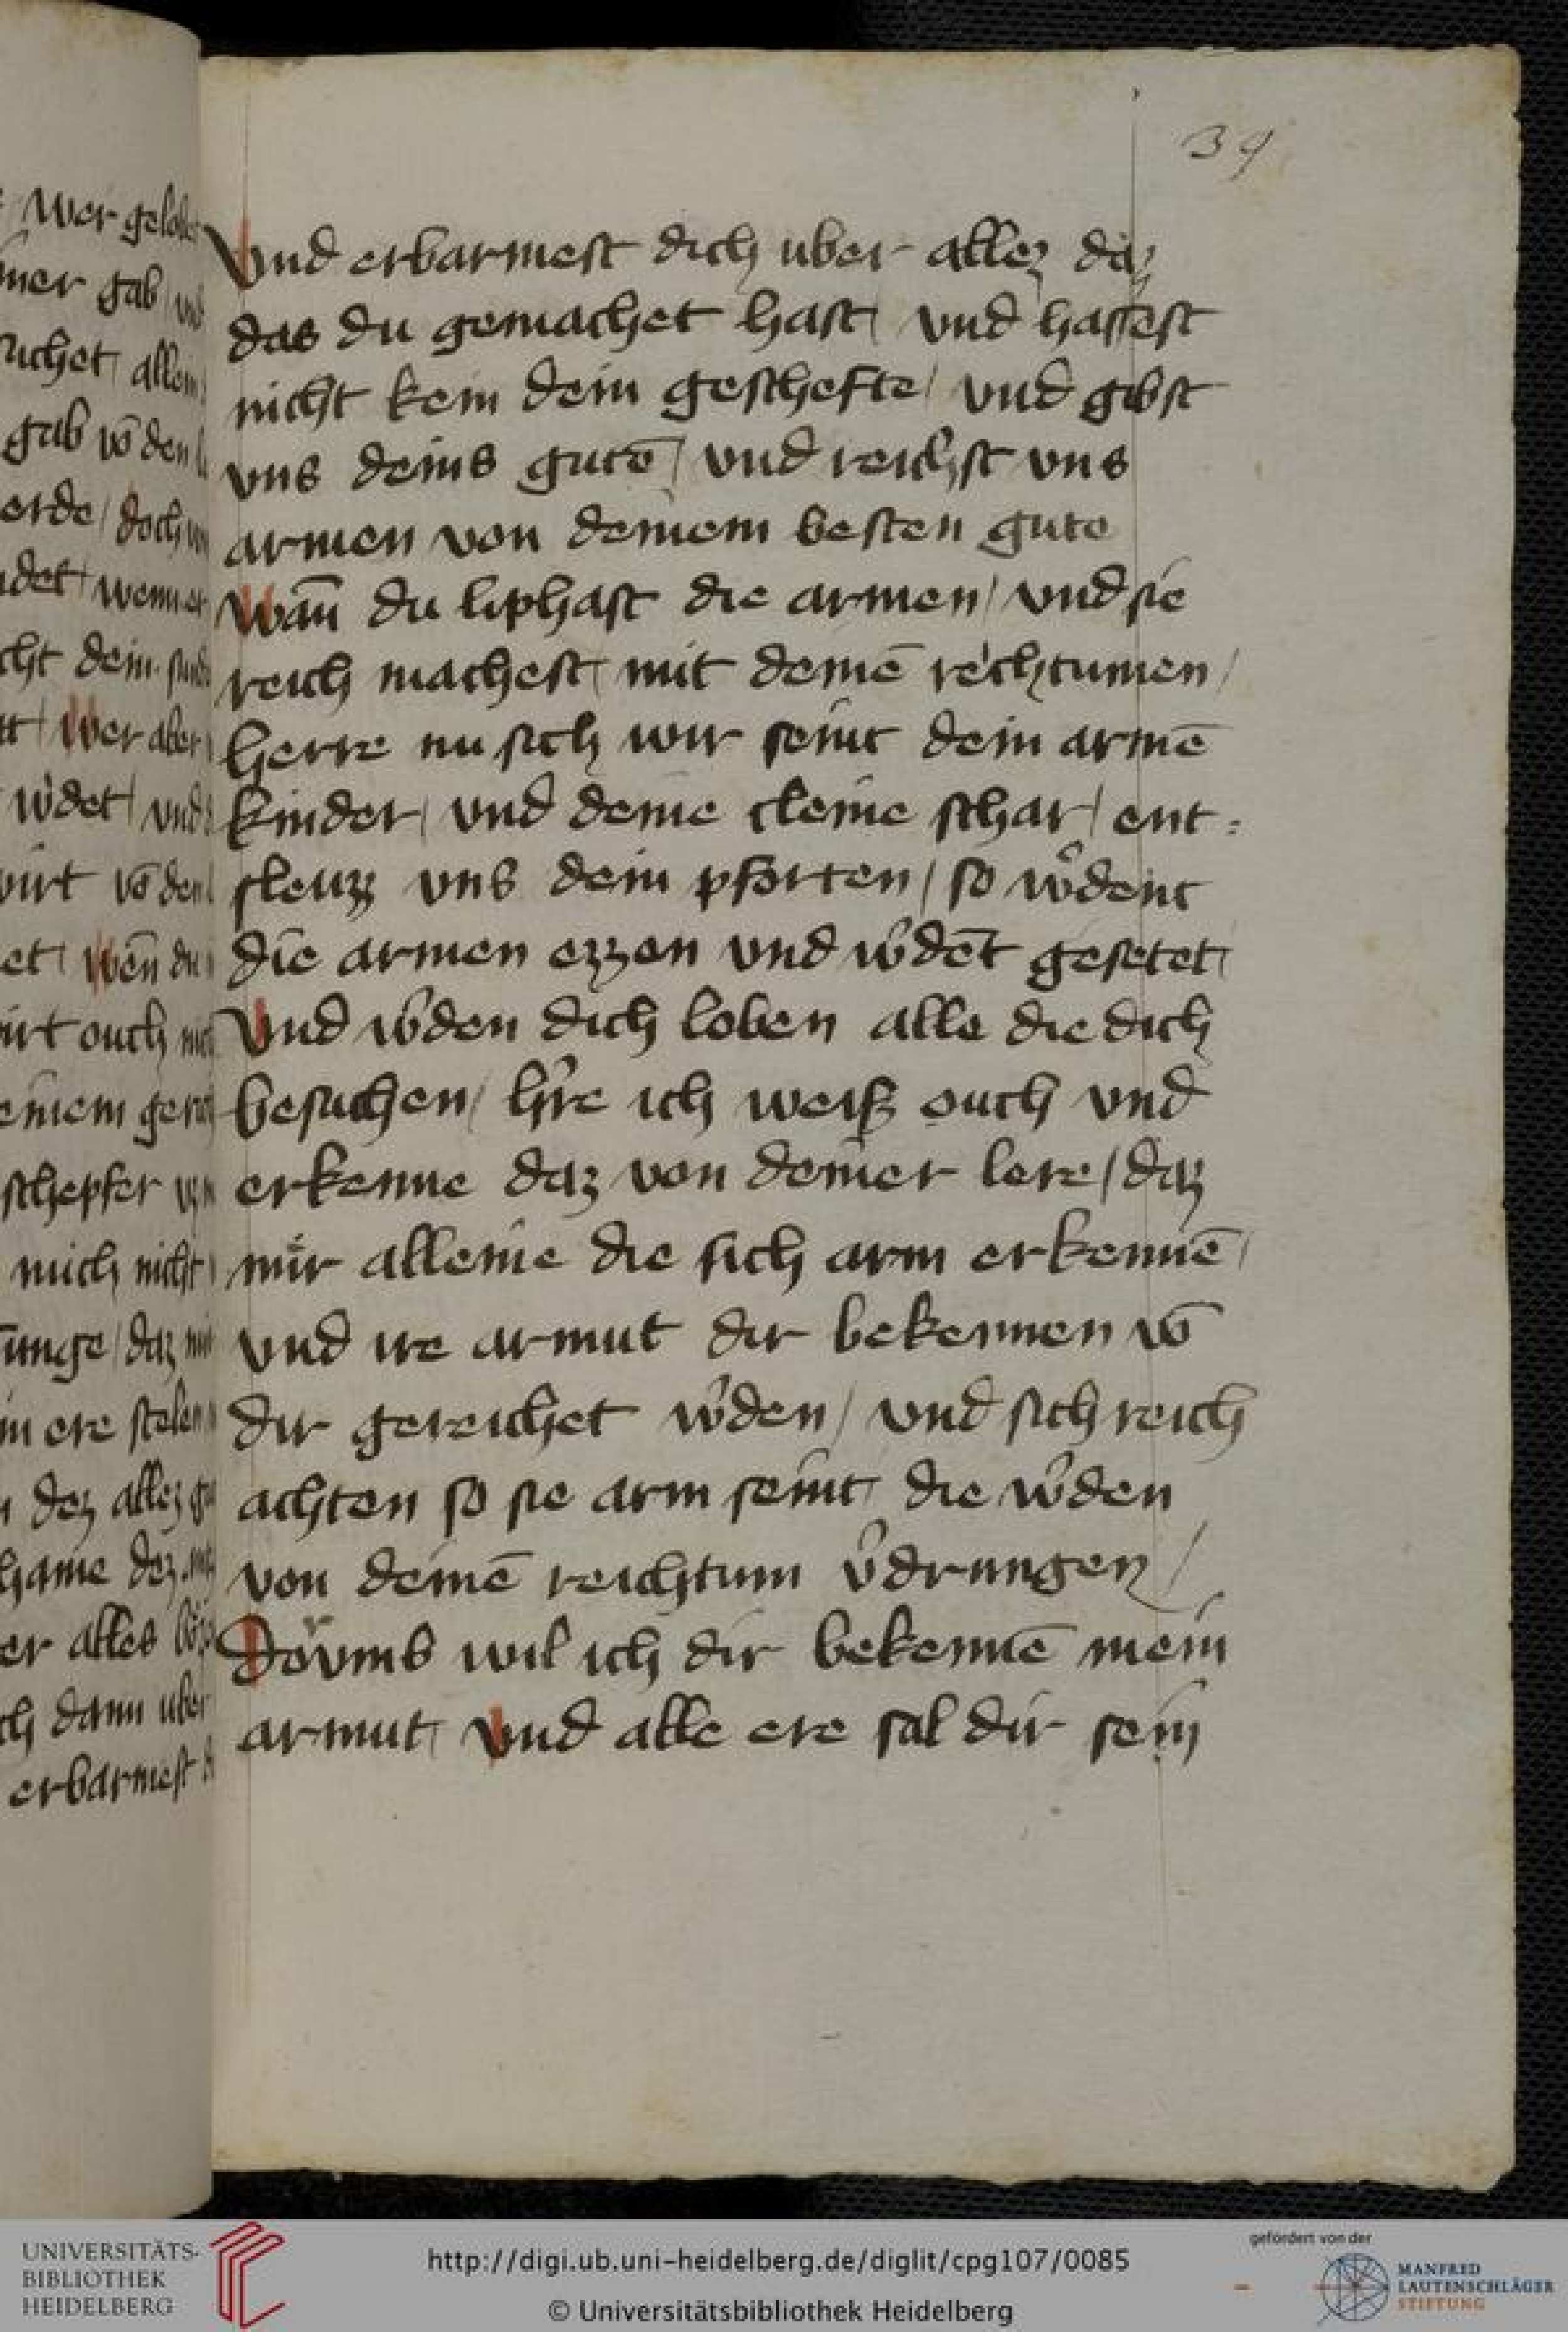 39
Vnd erbarmest dich uber allez daz
das du gemachet hast / vnd hassest
nicht kein dein geschefte / vnd gibst
vns deins gutē / vnd reichst vns
armen von deinem besten gute
Wañ du liphast die armen / vnd sie
reich machest / mit deinē reichtumen /
herre nu sich wir seint dein armē
kinder / vnd deine cleine schar / ent=
sleuzz vns dein pforten / so w̉dent
die armen ezzen vnd w̉dēt gesetet /
Vnd w̉den dich loben alle die dich
besuchen / h̉re ich weiß ouch vnd
erkenne daz von deiner lere / daz
nur alleine die sich arm erkennē /
vnd ire armut dir bekennen vō
dir gereichet w̉den / vnd sich reich
achten so sie arm seint / die w̉den
von deinē reichtum v̉drungen /
Dovmb wil ich dir bekennē mein
armut / Vnd alle ere sal dir sein
UNIVERSITÄTS-
BIBLIOTHEK
HEIDELBERG
http://digi.ub.uni-heidelberg.de/diglit/cpg107/0085
© Universitätsbibliothek Heidelberg
gefördert von der
MANFRED
LAUTENSCHLÄGER
STIFTUNG